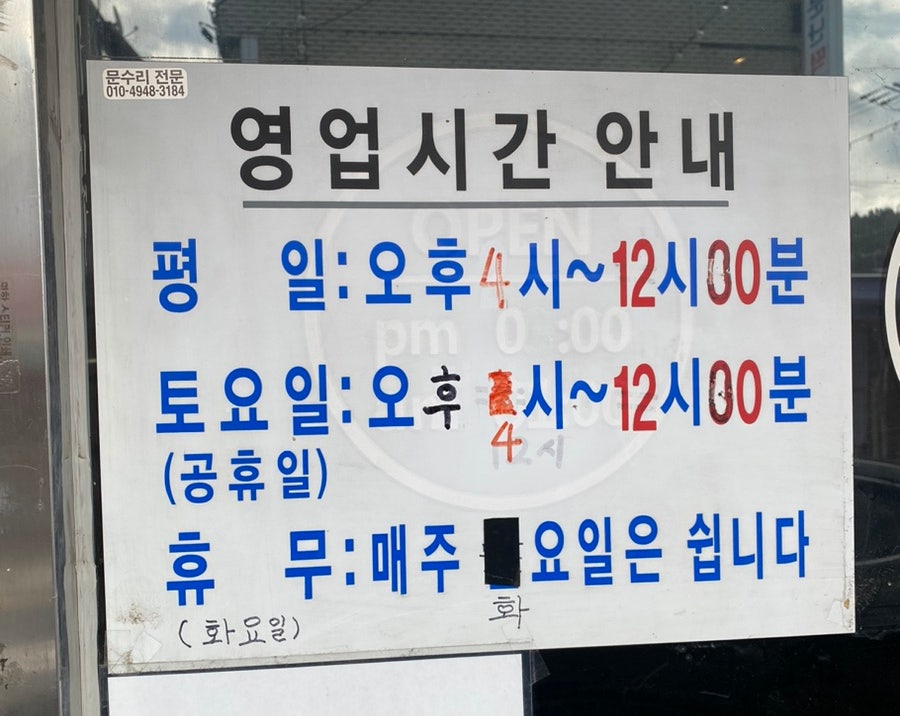 문수리 전문
010-4948-3184
영업시간 안내
평 일: 오후 4시~12시00분
토요일: 오후 시~12시00분
4
12시
(공휴일)
휴 무: 매주 요일은 쉽니다
화
(화요일)
OPEN
pm 0 :00